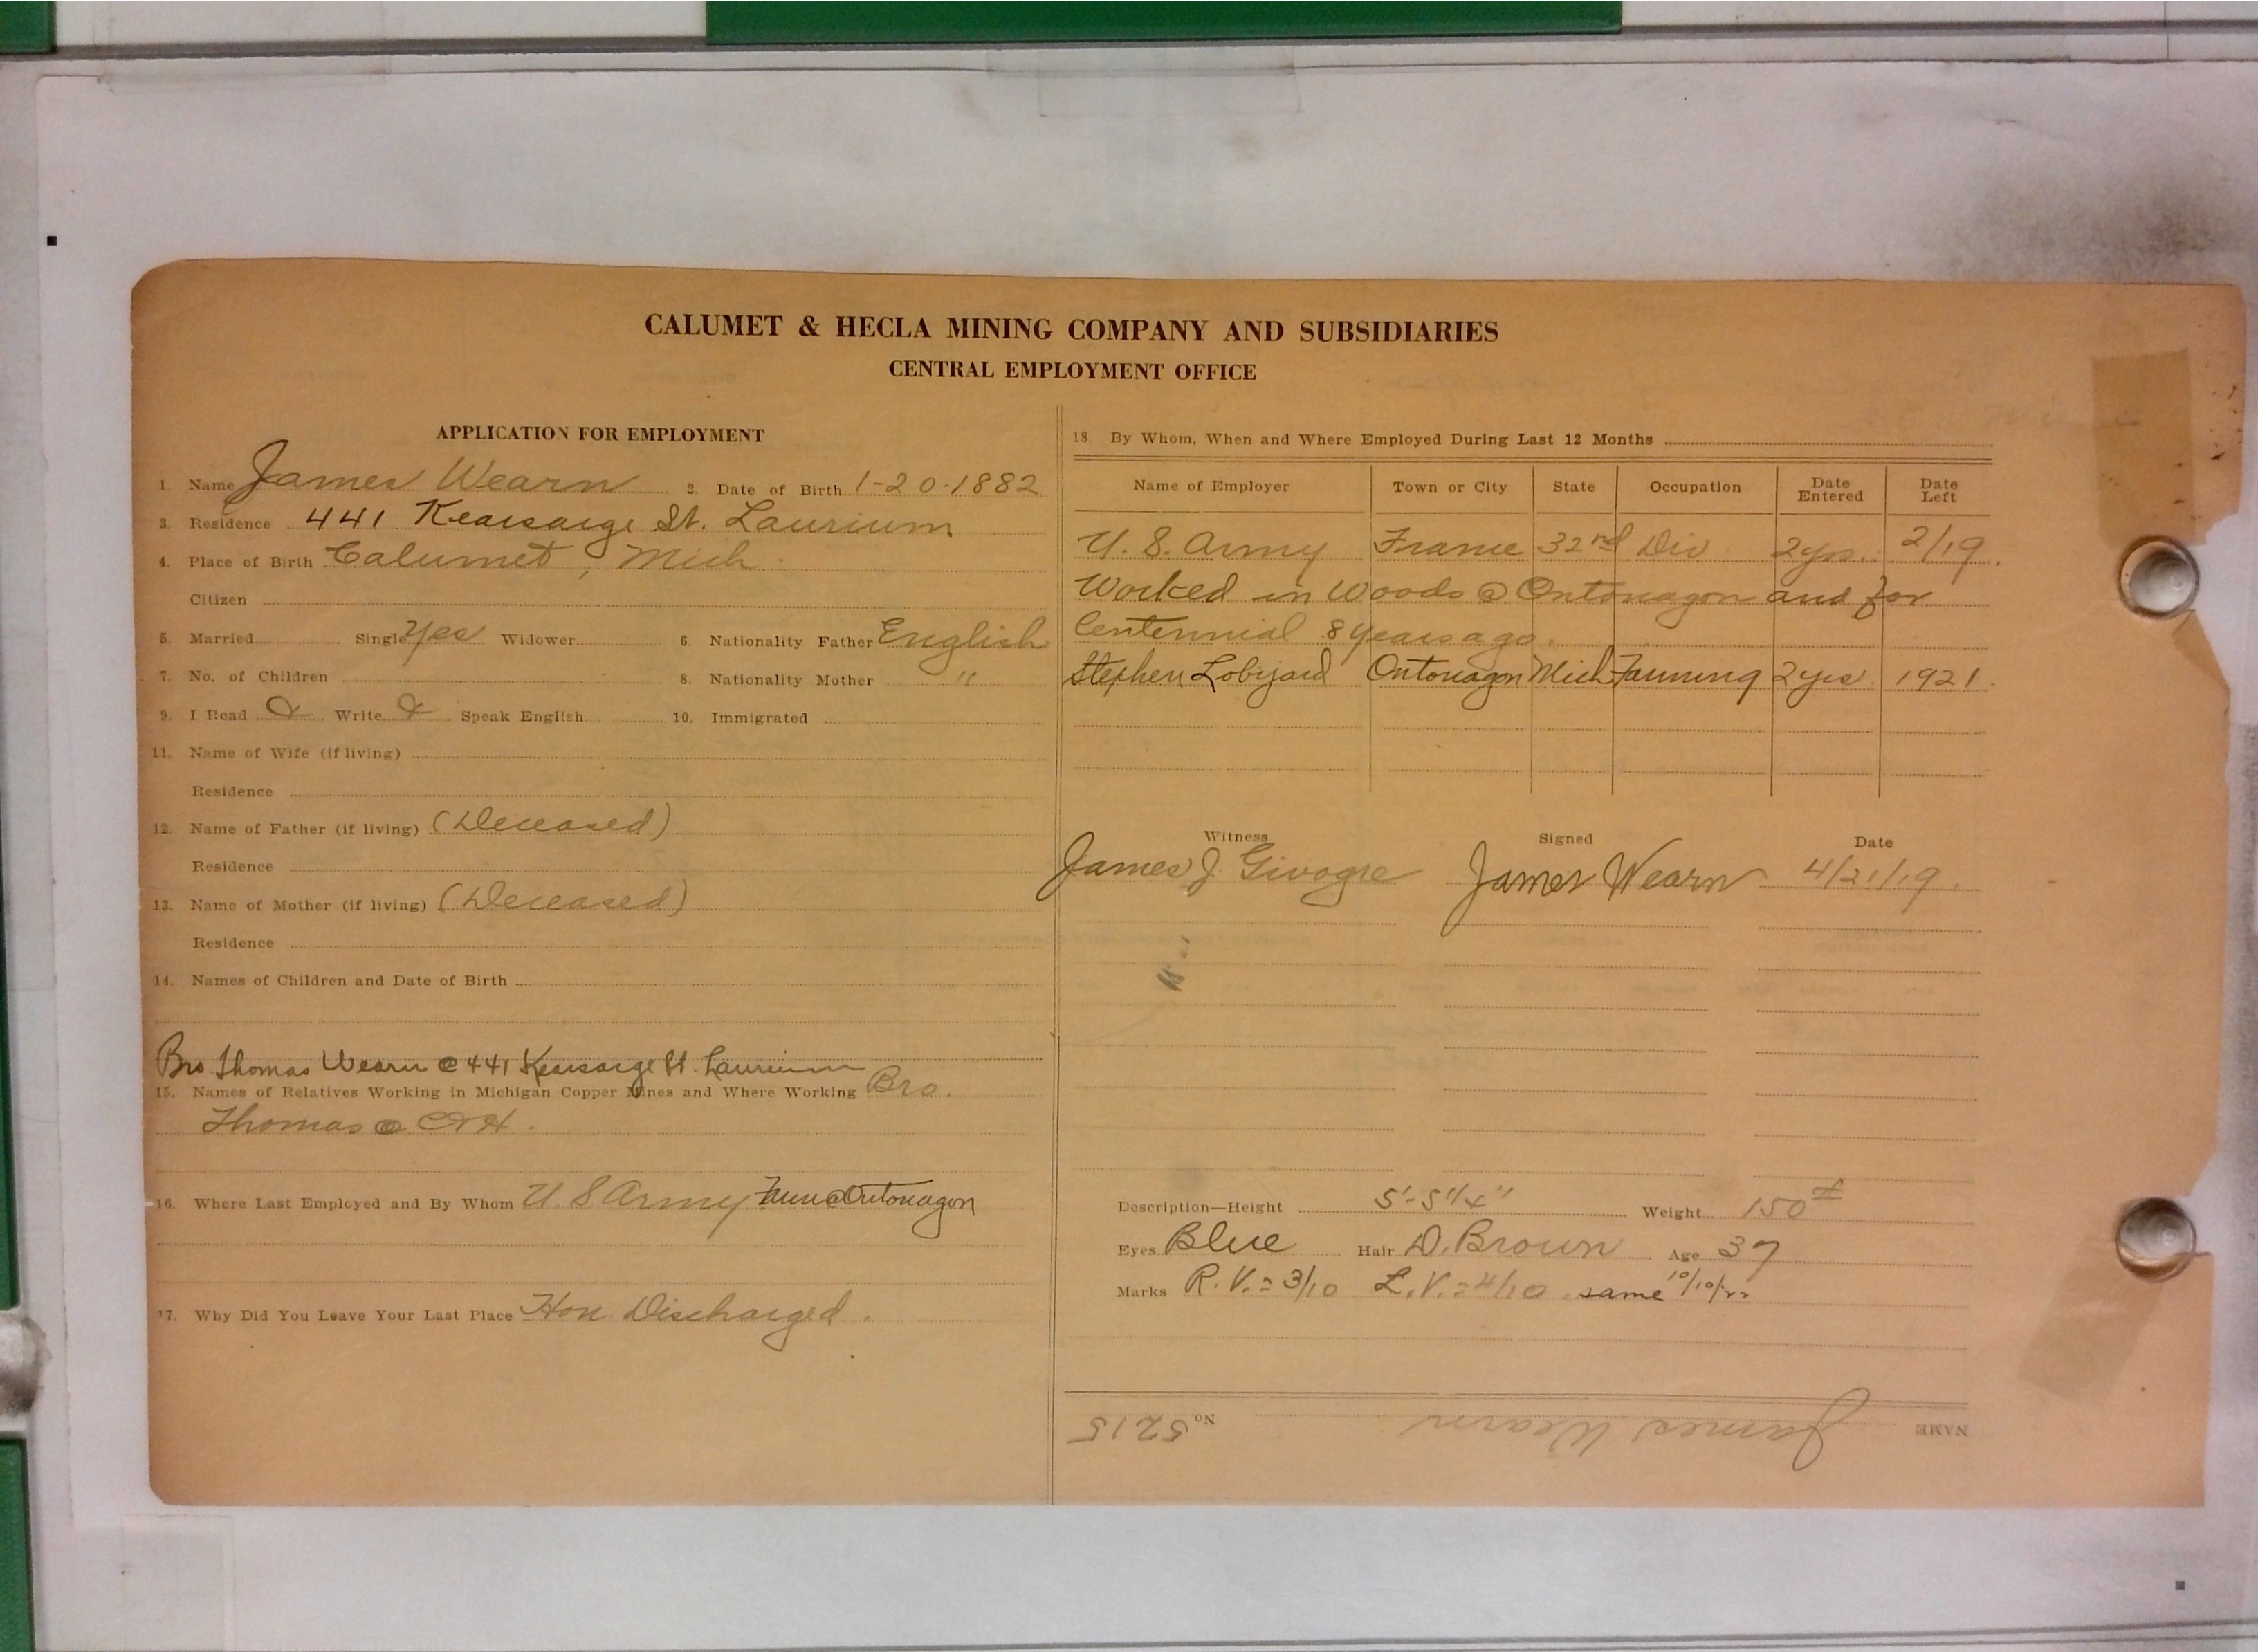 CALUMET & HECLA MINING COMPANY AND SUBSIDIARIES
CENTRAL EMPLOYMENT OFFICE
APPLICATION FOR EMPLOYMENT
1. Name James Wearn 2. Date of Birth 1-20-1882
3. Residence 441 Kearsarge St. Laurium
4. Place of Birth Calumet, Mich
Citizen
5. Married Single Yes Widower 6. Nationality Father English
7. No. of Children 8. Nationality Mother "
9. I Read Write Speak English 10. Immigrated
11. Name of Wife (if living)
Residence
12. Name of Father (if living) (Deceased)
Residence
13. Name of Mother (if living) (Deceased)
Residence
14. Names of Children and Date of Birth
Bro Thomas Wearn @ 441 Kearsarge St. Laurium
15. Names of Relatives Working in Michigan Copper Mines and Where Working Bro.
Thomas @ C&H.
16. Where Last Employed and By Whom U.S. Army Farm @ Ontonagon
17. Why Did You Leave Your Last Place Hon Discharged.
18. By Whom, When and Where Employed During Last 12 Months
Name of Employer Town or City State Occupation Date Entered Date Left
U.S. Army France 32nd Div. 2 yrs. 2/19.
Worked in Woods @ Ontonagon and for
Centennial 8 years ago.
Stephen Ontonagon Mich Farming 2 yrs. 1921.
Witness Signed Date
James J. James Wearn 4/21/19.
Description—Height 5'-5 1/4" Weight 150#
Eyes Blue Hair D. Brown Age 37
Marks R.V. = 3/10 L.V. = 4/10. same 10/10/22
NAME James Wearn No. 5215